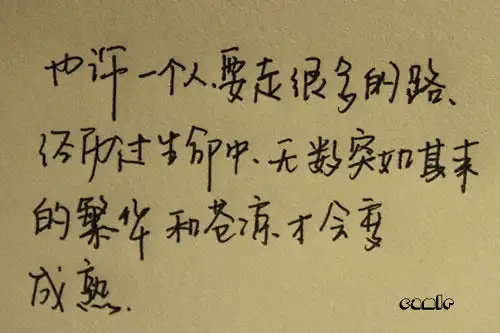 也许一个人、要走很多的路、
经历过生命中、无数突如其来
的繁华和苍凉、才会变
成熟.
comic